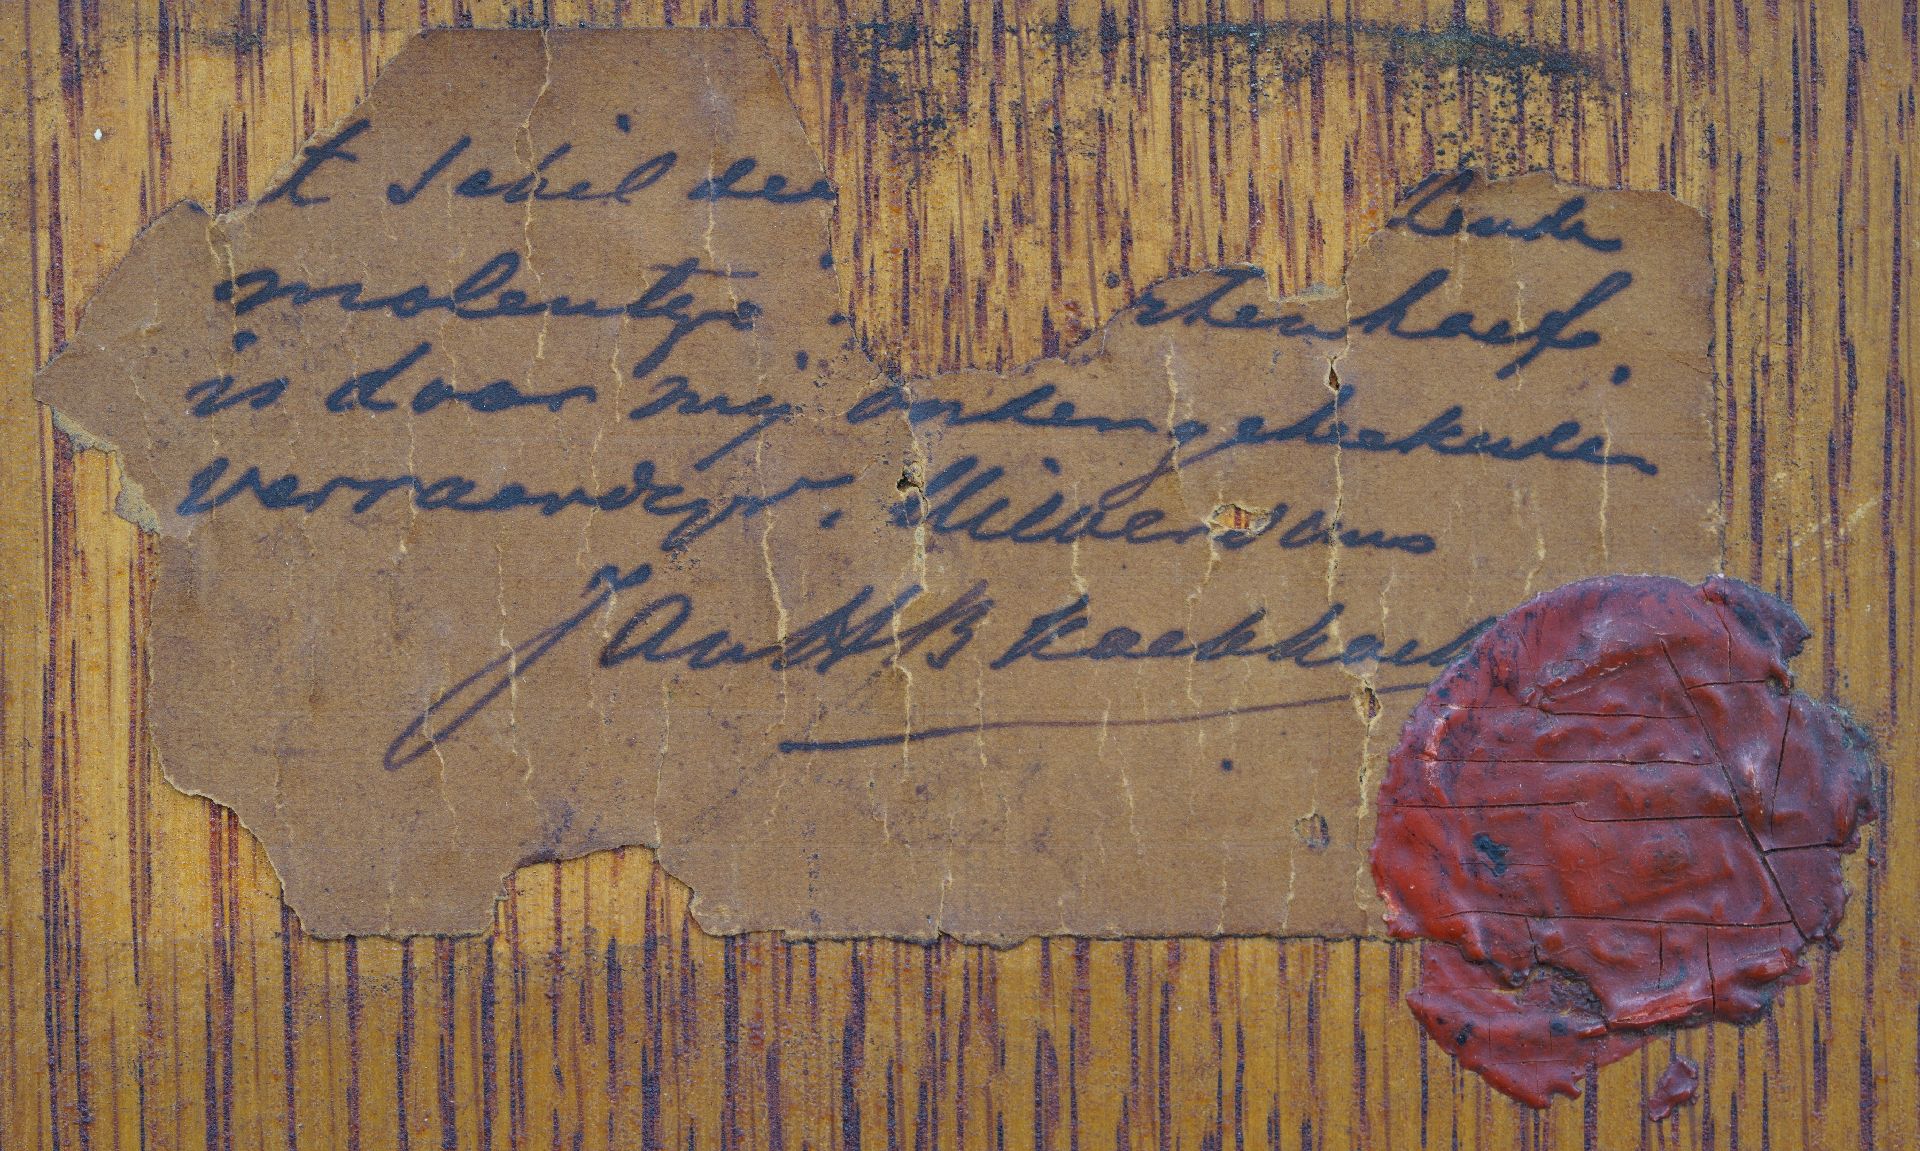 t Schil dee ende
molentje rtenhoef.
is door mij ondergeteekende
vervaardigd. Hilversum
Jan H B Koekkoek